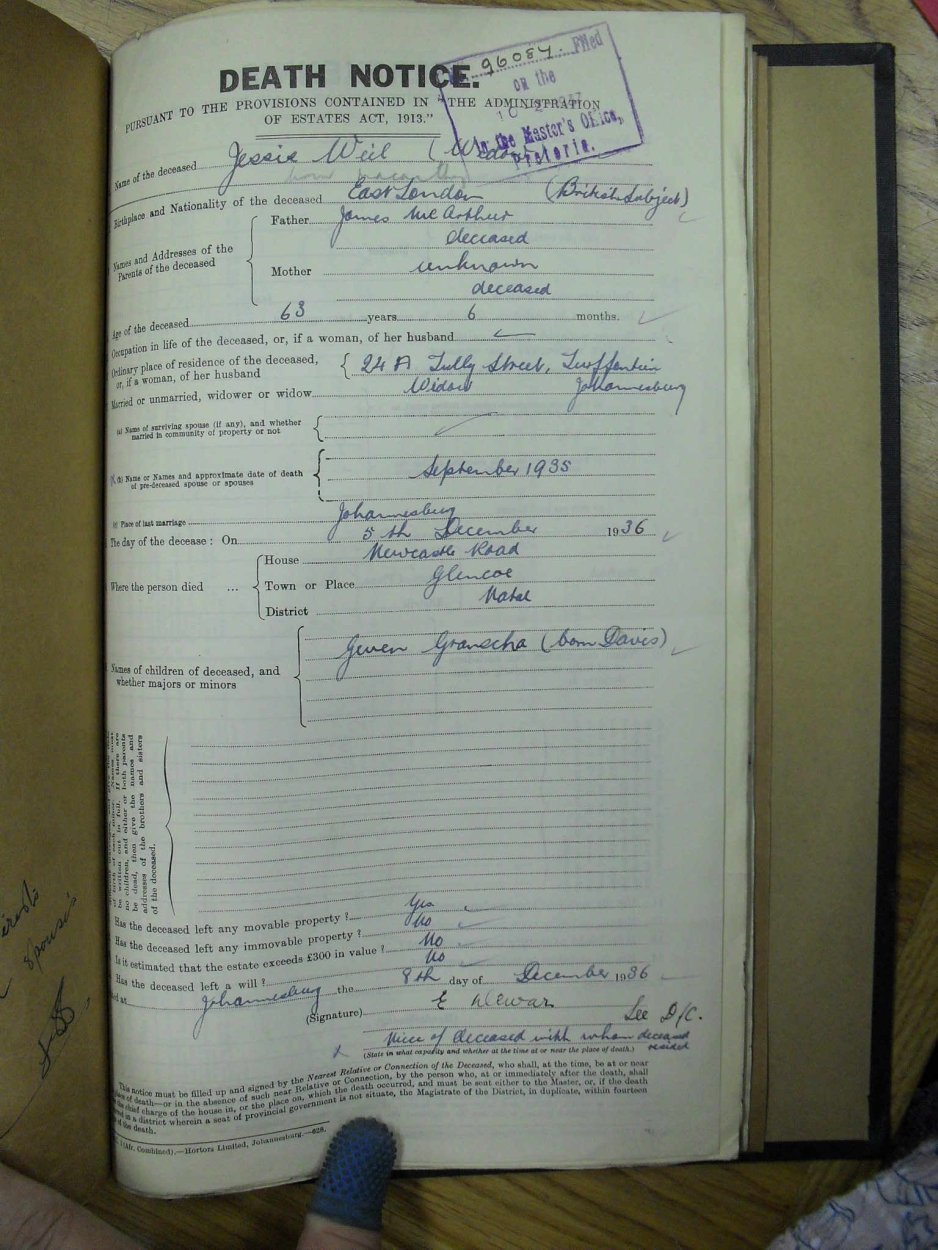 DEATH NOTICE.
96084. Filed
on the
In the Master's Office,
Pretoria.
PURSUANT TO THE PROVISIONS CONTAINED IN "THE ADMINISTRATION
OF ESTATES ACT, 1913."
Name of the deceased Jessie Weil
Birthplace and Nationality of the deceased East London (British Subject)
Names and Addresses of the
Parents of the deceased
Father James McArthur
deceased
Mother unknown
deceased
Age of the deceased 63 years 6 months.
Occupation in life of the deceased, or, if a woman, of her husband
Ordinary place of residence of the deceased,
or, if a woman, of her husband
24 A Tully Street, Turffontein
Johannesburg
Married or unmarried, widower or widow Widow
(a) Name of surviving spouse (if any), and whether
married in community of property or not
(b) Name or Names and approximate date of death
of pre-deceased spouse or spouses
September 1935
(c) Place of last marriage Johannesburg
The day of the decease : On 5th December 1936
Where the person died ...
House Newcastle Road
Town or Place Glencoe
District Natal
Names of children of deceased, and
whether majors or minors
Gwen (born Davis)
be written out in full. If there are
no children, and either or both parents
be dead, then give the names and
addresses of the brothers and sisters
of the deceased.
Has the deceased left any movable property ? Yes
Has the deceased left any immovable property ? No
Is it estimated that the estate exceeds £300 in value ? No
Has the deceased left a will ? No
at Johannesburg the 8th day of December 1936
(Signature) E Dewar
See D/C.
Niece of deceased with whom deceased
resided
(State in what capacity and whether at the time at or near the place of death.)
This notice must be filled up and signed by the Nearest Relative or Connection of the Deceased, who shall, at the time, be at or near
place of death—or in the absence of such near Relative or Connection, by the person who, at or immediately after the death, shall
the chief charge of the house in, or the place on, which the death occurred, and must be sent either to the Master, or, if the death
in a district wherein a seat of provincial government is not situate, the Magistrate of the District, in duplicate, within fourteen
of the death.
(Afr. Combined).—Hortors Limited, Johannesburg.—628.